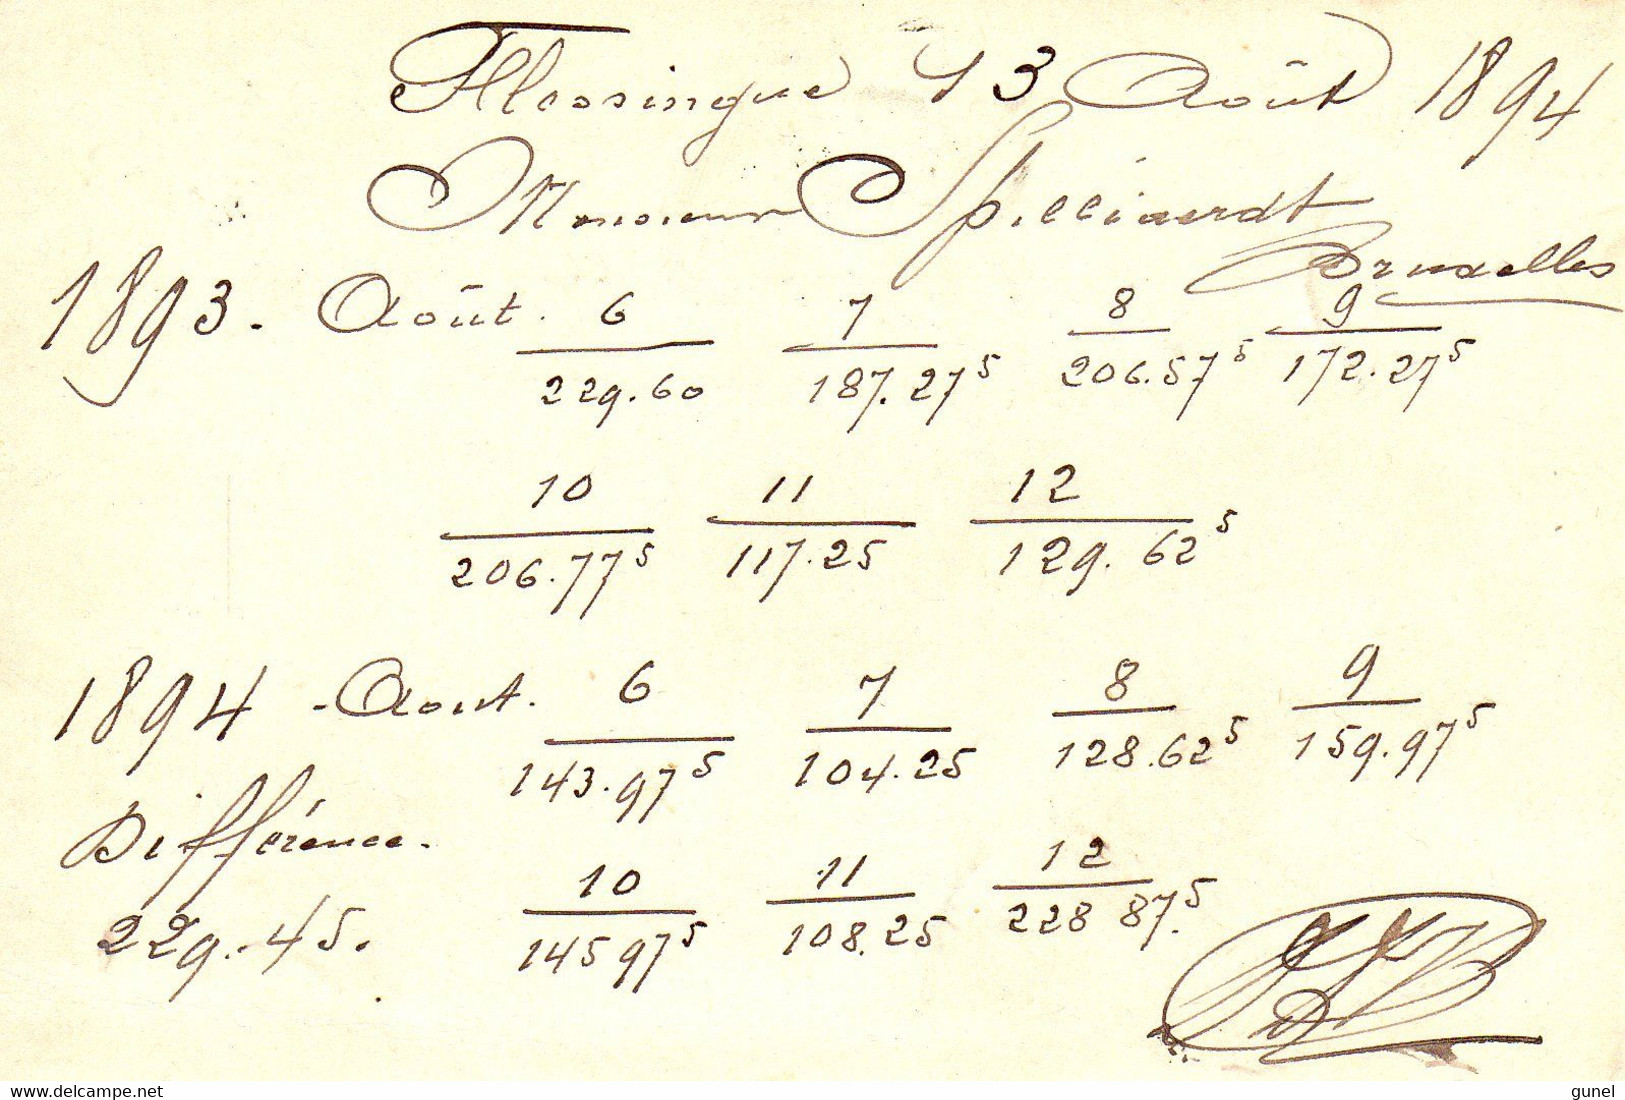 Flessingue 13 Août 1894
Monsieur Spilliaerdt
Bruxelles
1893. Août. 6 7 8 9
229.60 187.27⁵ 206.57⁵ 172.27⁵
10 11 12
206.77⁵ 117.25 129.62⁵
1894 - Aout. 6 7 8 9
143.97⁵ 104.25 128.62⁵ 159.97⁵
Différence.
10 11 12
229.45. 145 97⁵ 108.25 228 87⁵.
delcampe.net
gunel